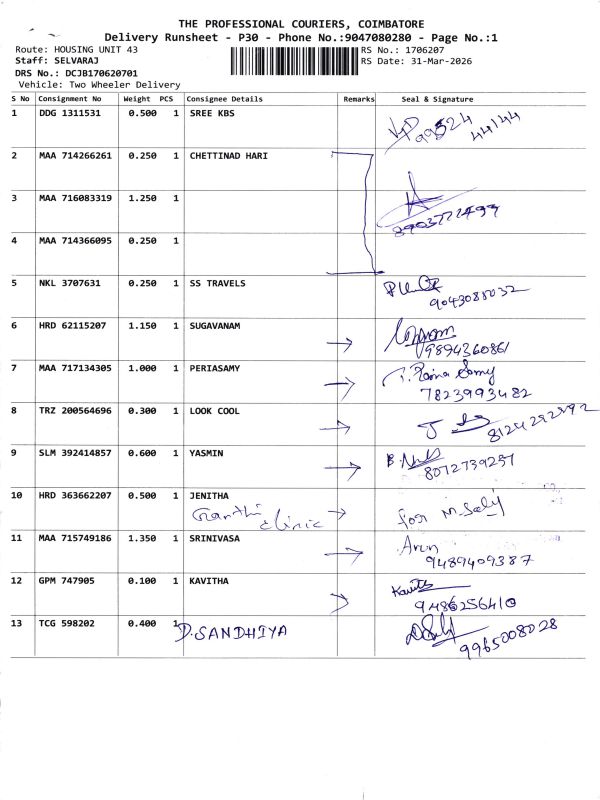 THE PROFESSIONAL COURIERS, COIMBATORE
Delivery Runsheet - P30 - Phone No.:9047080280 - Page No.:1
Route: HOUSING UNIT 43
RS No.: 1706207
Staff: SELVARAJ
RS Date: 31-Mar-2026
DRS No.: DCJB170620701
Vehicle: Two Wheeler Delivery
S No Consignment No Weight PCS Consignee Details Remarks Seal & Signature
1 DDG 1311531 0.500 1 SREE KBS
99524 44144
2 MAA 714266261 0.250 1 CHETTINAD HARI
3 MAA 716083319 1.250 1
8903772499
4 MAA 714366095 0.250 1
5 NKL 3707631 0.250 1 SS TRAVELS
9043085032
6 HRD 62115207 1.150 1 SUGAVANAM
9894360861
7 MAA 717134305 1.000 1 PERIASAMY
7823993482
8 TRZ 200564696 0.300 1 LOOK COOL
8124292892
9 SLM 392414857 0.600 1 YASMIN
8072739257
10 HRD 363662207 0.500 1 JENITHA
Clinic for M.
11 MAA 715749186 1.350 1 SRINIVASA
Arun
9489409387
12 GPM 747905 0.100 1 KAVITHA
Kavitha
9486256410
13 TCG 598202 0.400 1 D.SANDHIYA
9965008028